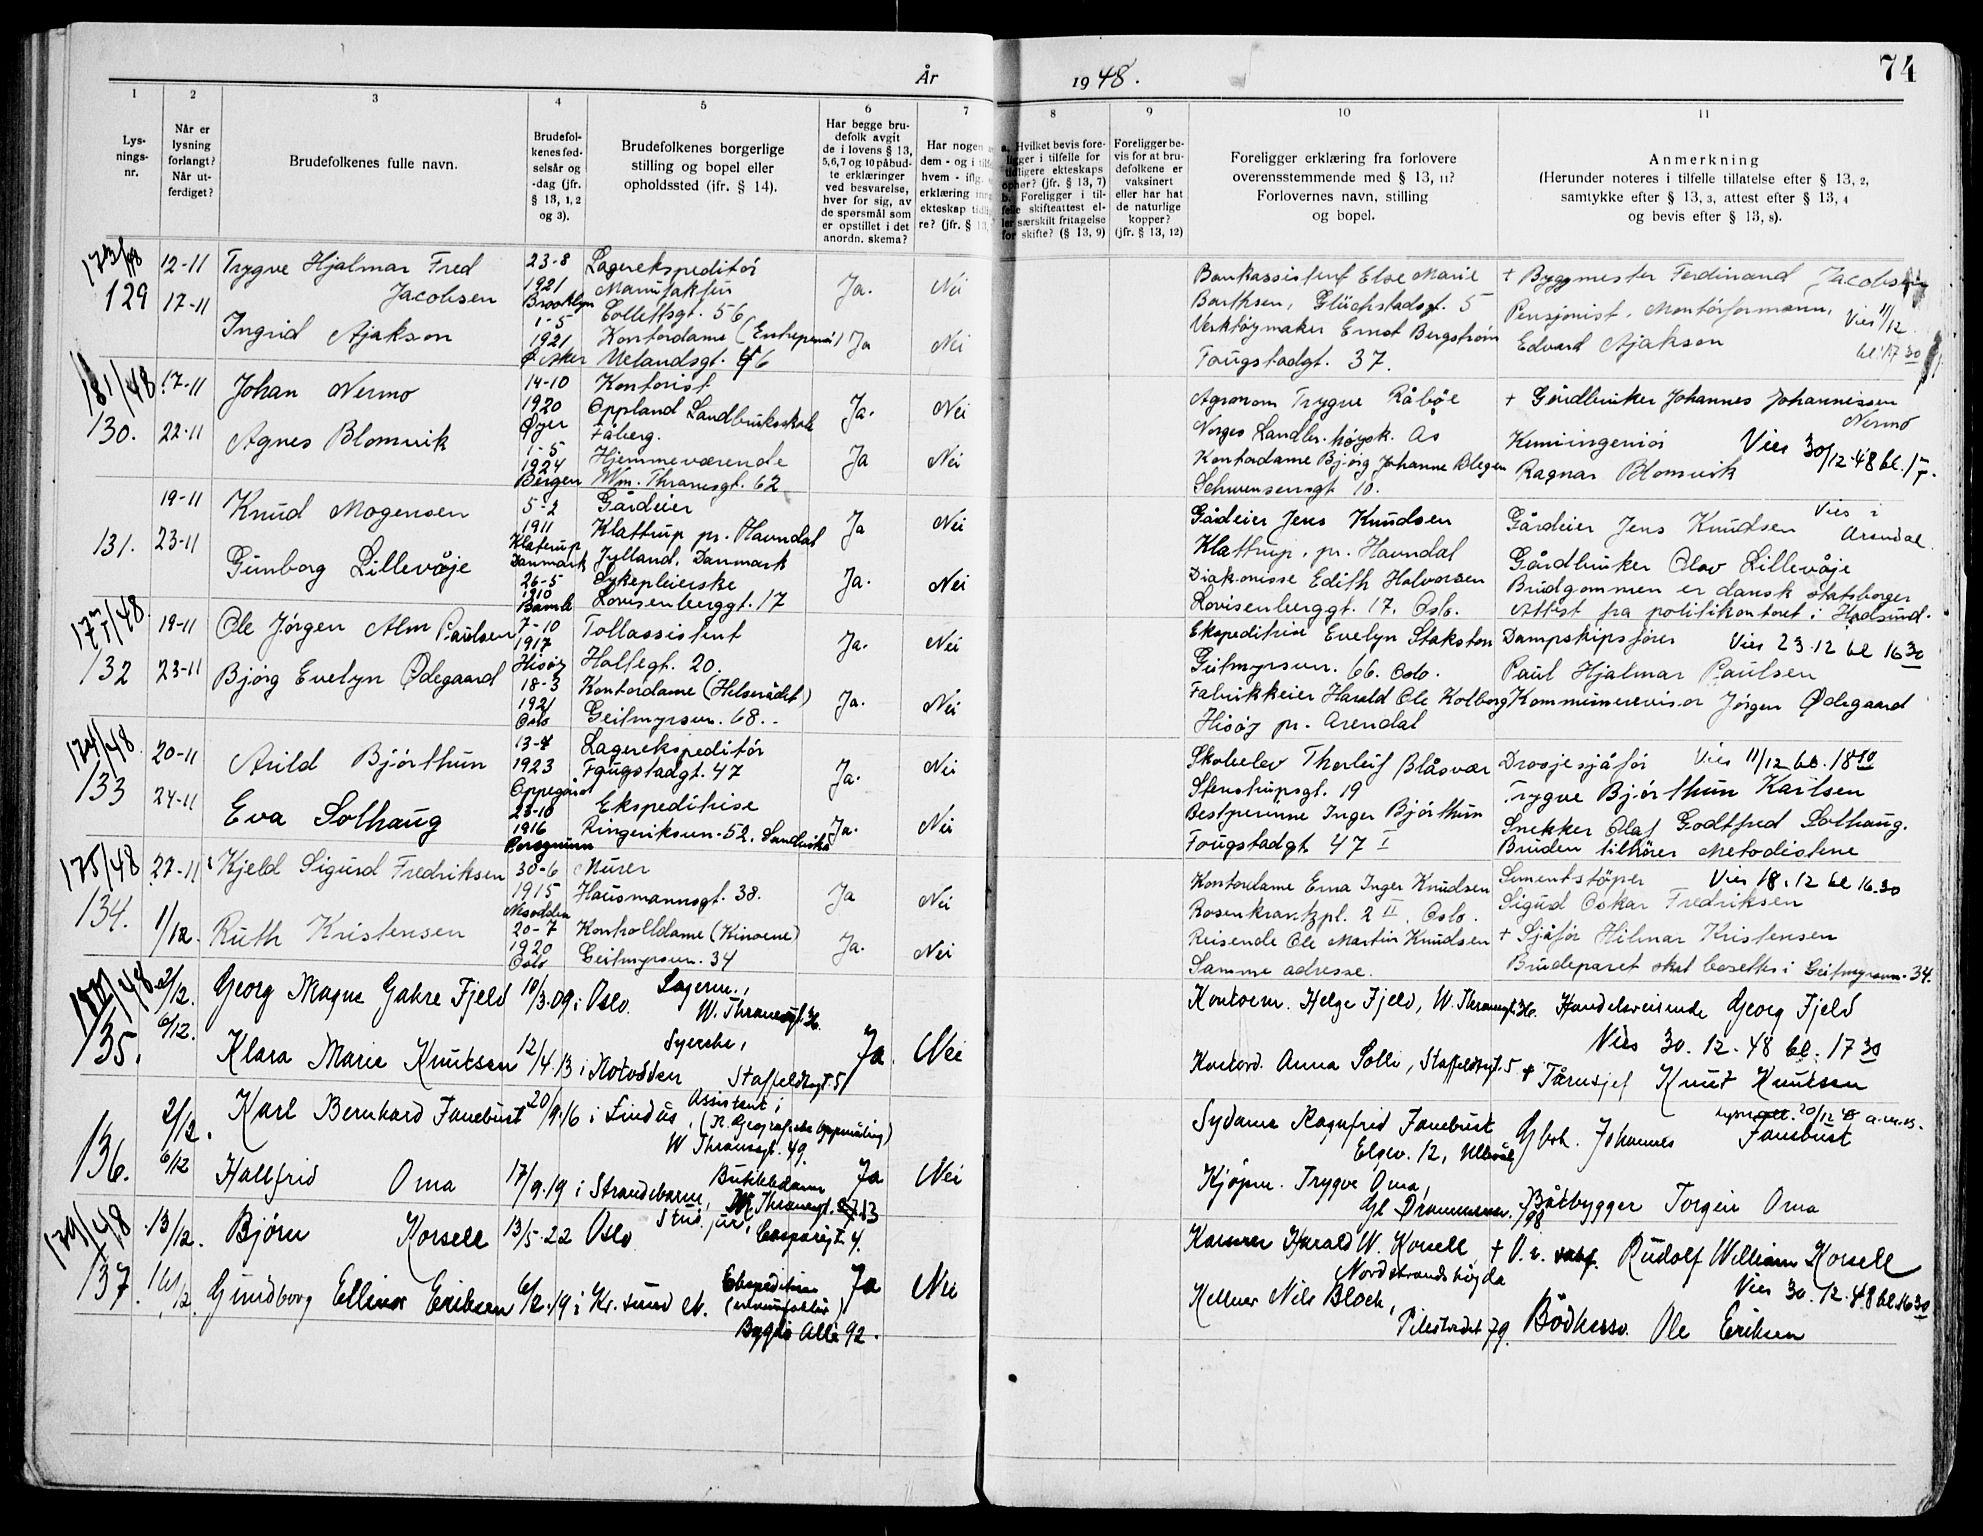 År
1948.
74
1
Lys-
nings-
nr.
2
Når er
lysning
forlangt?
Når ut-
ferdiget?
3
Brudefolkenes fulle navn.
4
Brudefol-
kenes fød-
selsår og
-dag (jfr.
§ 13, 1, 2
og 3).
5
Brudefolkenes borgerlige
stilling og bopel eller
opholdssted (jfr. § 14).
6
Har begge bru-
defolk avgit
de i lovens § 13,
5,6,7 og 10 påbud-
te erklæringer
ved besvarelse,
hver for sig, av
de spørsmål som
er opstillet i det
anordn. skema?
7
Har nogen
dem - og i
hvem - iflg.
erklæring
ekteskap
re? (jfr. § 13,
8
Hvilket bevis fore-
ligger i tilfelle for
tidligere ekteskaps
ophør? (jfr. § 13, 7)
b. Foreligger i til-
felle skifteattest el-
ler særskilt fritagelse
for skifte? (§ 13, 9)
9
Foreligger be-
vis for at bru-
defolkene er
vaksinert
eller har hat
de naturlige
kopper?
(jfr. § 13, 12)
10
Foreligger erklæring fra forlovere
overensstemmende med § 13, 11?
Forlovernes navn, stilling
og bopel.
11
Anmerkning
(Herunder noteres i tilfelle tillatelse efter § 13, 2,
samtykke efter § 13, 3, attest efter § 13, 4
og bevis efter § 13, 8).
129
12-11
17-11
Trygve Hjalmar Fred
Jacobsen
Ingrid Ajakson
23-8
1921
Brooklyn
1-5
1921
Ø. Aker
Lagerekspeditør
Manufaktur
Collettsgt. 56
Kontordame (Entreprenør)
Uelandsgt. 46
Ja.
Ja
Nei
Nei
Bankassistent Else Marie
Barthsen, Glückstadsgt. 5
Verktøymaker Ernst Bergstrøm
Fougstadgt. 37.
+ Byggmester Ferdinand Jacobsen
Pensjonist, Montørformann,
Edvard Ajakson
Vies 11/12
kl. 17 30
181/48
130.
17-11
22-11
Johan Nermo
Agnes Blomvik
14-10
1920
Øyer
1-5
1924
Bergen
Kontorist
Oppland Landbruksskole
Fåberg.
Hjemmeværende
Wm. Thranesgt. 62
Ja.
Ja
Nei
Nei
Agronom Trygve Råbøl
Norges Landbr. høysk. Ås
Kontordame Bjørg Johanne Blegen
Schwensensgt 10.
+ Gårdbruker Johannes Johannessen
Nermo
Kemiingeniør
Ragnar Blomvik
Vies 30/12-48 kl. 17.
131.
19-11
23-11
Knud Mogensen
Gunborg Lillevåje
5-2
1911
Klaterup
Danmark
26-5
1910
Bamle
Gårdeier
Klattrup pr. Havndal
Jylland, Danmark
Sykepleierske
Lovisenberggt. 17
Ja
Ja.
Nei
Nei
Gådeier Jens Knudsen
Klattrup, pr. Havndal
Diakonisse Edith Halvorsen
Lovisenberggt. 17, Oslo.
Gårdeier Jens Knudsen
Vies i
Arendal.
Gårdbruker Olav Lillevåje
Brudgommen er dansk statsborger
Attest fra politikontoret i Hadsund.
132
19-11
23-11
Ole Jörgen Alm Paulsen
Bjørg Evelyn Ødegaard
7-10
1917
Hisøy
18-3
1921
Oslo
Tollassistent
Holtegt. 20.
Kontordame (Helserådet)
Geitmyrsvn. 68.
Ja.
Ja.
Nei
Nei
Ekspeditrise Evelyn Stakston
Geitmyrsvn. 66. Oslo.
Fabrikkeier Harald Ole Kolberg
Hisøy pr. Arendal
Dampskipsfører
Vies 23.12 kl 16 30
Paul Hjalmar Paulsen
Kommunerevisor Jørgen Ødegaard
174/48
133
20-11
24-11
Arild Bjørthun
Eva Solhaug
13-4
1923
Oppegård
23-10
1916
Porsgrunn
Lagerekspeditør
Fougstadgt. 47
Ekspeditrise
Ringeriksvn. 52, Sandvika
Ja.
Ja.
Nei
Nei
Skoelev Thorleif Blåsvær
Stenstrupsgt. 19
Bestyrerinne Inger Bjørthun
Fougstadgt 47 I
Drosjesjåfør
Vies 11/12 kl. 18 10
Trygve Bjørthun Karlsen
Snekker Olaf Godtfred Solhaug.
Bruden tilhører Metodistene
175/48
134.
27-11
1/12.
Kjeld Sigurd Fredriksen
Ruth Kristensen
30-6
1915
Nesodden
20-7
1920
Oslo
Murer
Hausmannsgt. 38.
Kontrolldame (Kinoene)
Geitmyrsvn. 34
Ja
Ja.
Nei
Nei
Kontordame Erna Inger Knudsen
Rosenkrantzpl. 2 II, Oslo.
Reisende Ole Martin Knudsen
Samme adresse.
Sementstøper
Vies 18.12 kl 16.30
Sigurd Oskar Fredriksen
+ Sjåfør Hilmar Kristensen
Brudeparet skal bosette i Geitmyrsvn. 34.
135.
2/12.
6/12.
Georg Magne Gakre Fjeld
Klara Marie Knutsen
10/3.09 i Oslo.
12/4.13 i Notodden
Lagerm.,
W. Thranesgt. 36.
Syerske,
Staffeldtsgt. 5
Ja.
Nei
Kontorm. Helge Fjeld, W. Thranesgt. 36.
Kontord. Anna Solli, Staffeldtsgt. 5
Handelsreisende Georg Fjeld
Vies 30.12-48 kl. 17 30
+ Tårnsjef Knut Knutsen
136.
2/12.
6/12
Karl Bernhard Fanebust
Hallfrid Oma
20/9.16 i Lindås,
17/9.19 i Strandebarm,
Assistent i
(N. Geografiske Oppmåling)
W Thranesgt. 49.
Butikkdame
W. Thranesgt. 13
Ja
Nei
Sydame Ragnfrid Fanebust
Elsv. 12, Ullevål
Kjøpm. Trygve Oma,
Gl Drammensv. 198
Gbrk. Johannes Fanebust
20/12 48
Båtbygger Torgeir Oma
179/48
137.
13/12.
16/12.
Bjørn Korsell
Gundborg Ellinor Eriksen
13/5-22 Oslo
6/2.19 i Kr. sund N.
Stud. jur, Casparigt 4.
Ekspeditrise
(manufaktur)
Bygdø Allé 92.
Ja
Nei
Kasserer Harald W. Korsell
Nordstrandshøgda
Kellner Nils Bloch,
Pilestredet 79.
+ Rudolf William Korsell
Vies 30.12.48 kl. 16 30
Bødkersv. Ole Eriksen